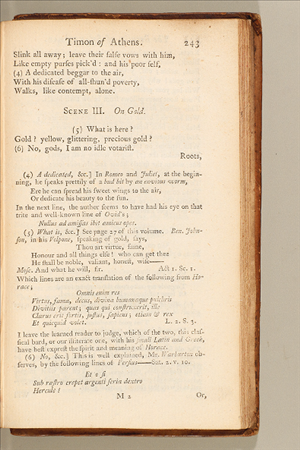 Timon of Athens. 243
Slink all away; leave their false vows with him,
Like empty purses pick'd: and his poor self,
(4) A dedicated beggar to the air,
With his disease of all-shun'd poverty,
Walks, like contempt, alone.
SCENE III. On Gold.
(5) What is here?
Gold? yellow, glittering, precious gold?
(6) No, gods, I am no idle votarist.
Roots,
(4) A dedicated, &c.] In Romeo and Juliet, at the begin-
ning, he speaks prettily of a bud bit by an envious worm,
Ere he can spread his sweet wings to the air,
Or dedicate his beauty to the sun.
In the next line, the author seems to have had his eye on that
trite and well-known line of Ovid's;
Nullus ad amissas ibit amicus opes.
(5) What is, &c.] See page 27 of this volume. Ben. John-
son, in his Volpone, speaking of gold, says,
Thou art virtue, fame,
Honour and all things else! who can get thee
He shall be noble, valiant, honest, wise—
Mosc. And what he will, sir. Act 1. Sc. 1.
Which lines are an exact translation of the following from Ho-
race;
Omnis enim res
Virtus, fama, decus, divina humanaque pulchris
Divitiis parent; quas qui construxerit, ille
Clarus erit fortis, justus, sapiens; etiam & rex
Et quicquid volet. L. 2. S. 3.
I leave the learned reader to judge, which of the two, this clas-
sical bard, or our illiterate one, with his small Latin and Greek,
have best exprest the spirit and meaning of Horace.
(6) No, &c.] This is well explained, Mr. Warburton ob-
serves, by the following lines of Persius—Sat. 2. v. 10.
Et o si
Sub rastro crepet argenti seria dextro
Hercule!
M 2 Or,